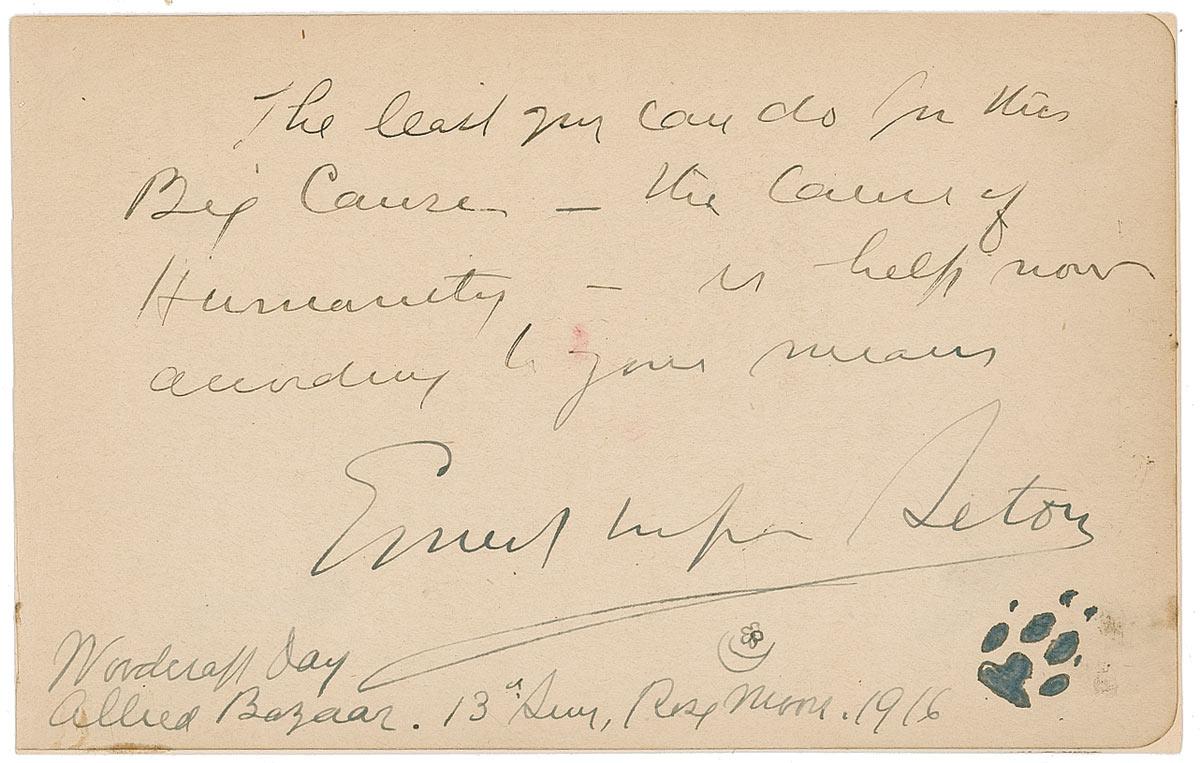 The least you can do for this
Big Cause – the Cause of
Humanity – is help now
according to your means
Ernest Thompson Seton
Woodcraft Day
Allied Bazaar. 13th Sun, Rose Moon. 1916